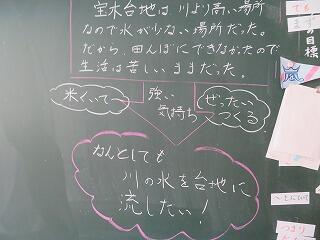 宝木台地は川より高い場所
なので水が少ない場所だった。
だから、田んぼにできなかったので
生活は苦しいままだった。
米くいて〜
強い
気持ち
ぜったい
つくる
なんとしても
川の水を台地に
流したい！
でも
まず
の目標
つまり